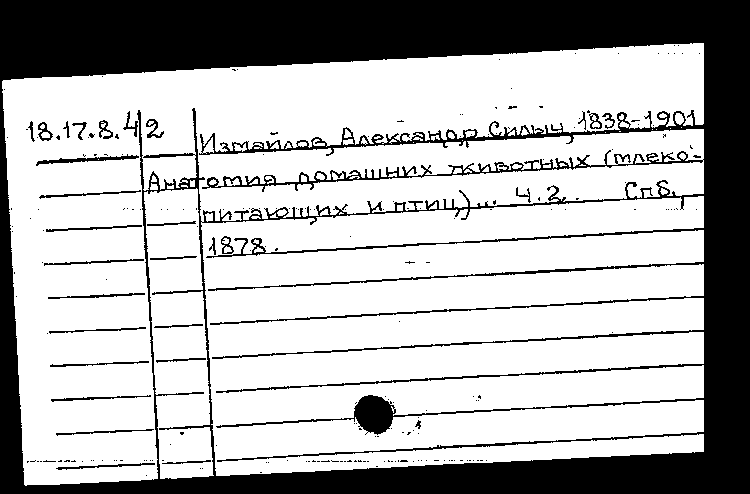 18.17.8.4 2
Измайлов, Александр Силыч, 1838-1901
Анатомия домашних животных (млеко-
питающих и птиц)... Ч.2. Спб.,
1878.